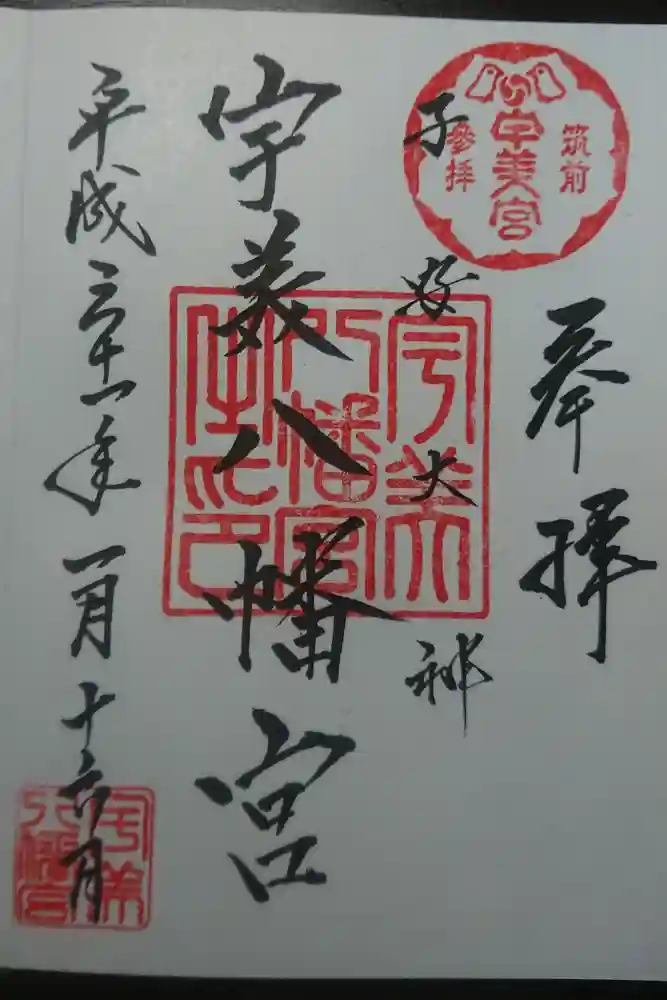 奉拝
筑前
宇美宮
參拝
子安大神
宇美八幡宮
宇美
八幡宮
之印
平成三十一年一月十六日
宇美
八幡宮